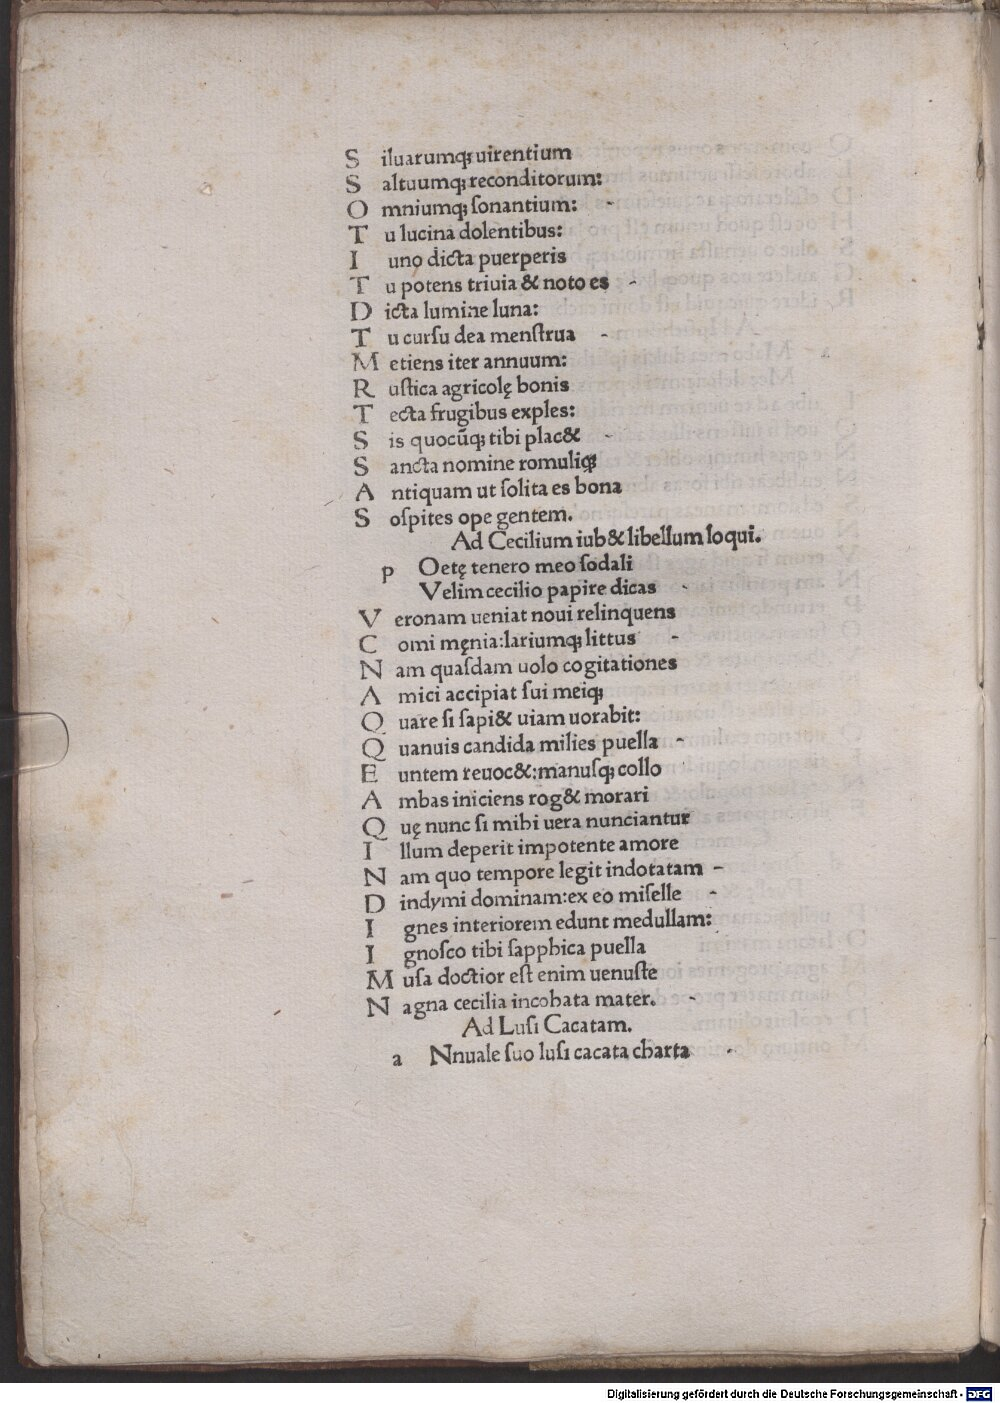 S iluarumq; uirentium
S altuumq; reconditorum:
O mniumq; ſonantium:
T u lucina dolentibus:
I uno dicta puerperis
T u potens triuia & noto es
D icta lumine luna:
T u curſu dea menſtrua
M etiens iter annuum:
R uſtica agricolę bonis
T ecta frugibus exples:
S is quocūq; tibi plac&
S ancta nomine romuliq;
A ntiquam ut ſolita es bona
S oſpites ope gentem.
Ad Cecilium iub& libellum loqui.
p Oetę tenero meo ſodali
Velim cecilio papire dicas
V eronam ueniat noui relinquens
C omi męnia:lariumq; littus
N am quaſdam uolo cogitationes
A mici accipiat ſui meiq;
Q uare ſi ſapi& uiam uorabit:
Q uanuis candida milies puella
E untem reuoc&:manuſq; collo
A mbas iniciens rog& morari
Q uę nunc ſi mihi uera nunciantur
I llum deperit impotente amore
N am quo tempore legit indotatam
D indymi dominam:ex eo miſelle
I gnes interiorem edunt medullam:
I gnoſco tibi ſapphica puella
M uſa doctior eſt enim uenuſte
N agna cecilia incohata mater.
Ad Luſi Cacatam.
a Nnuale ſuo luſi cacata charta
Digitalisierung gefördert durch die Deutsche Forschungsgemeinschaft - DFG